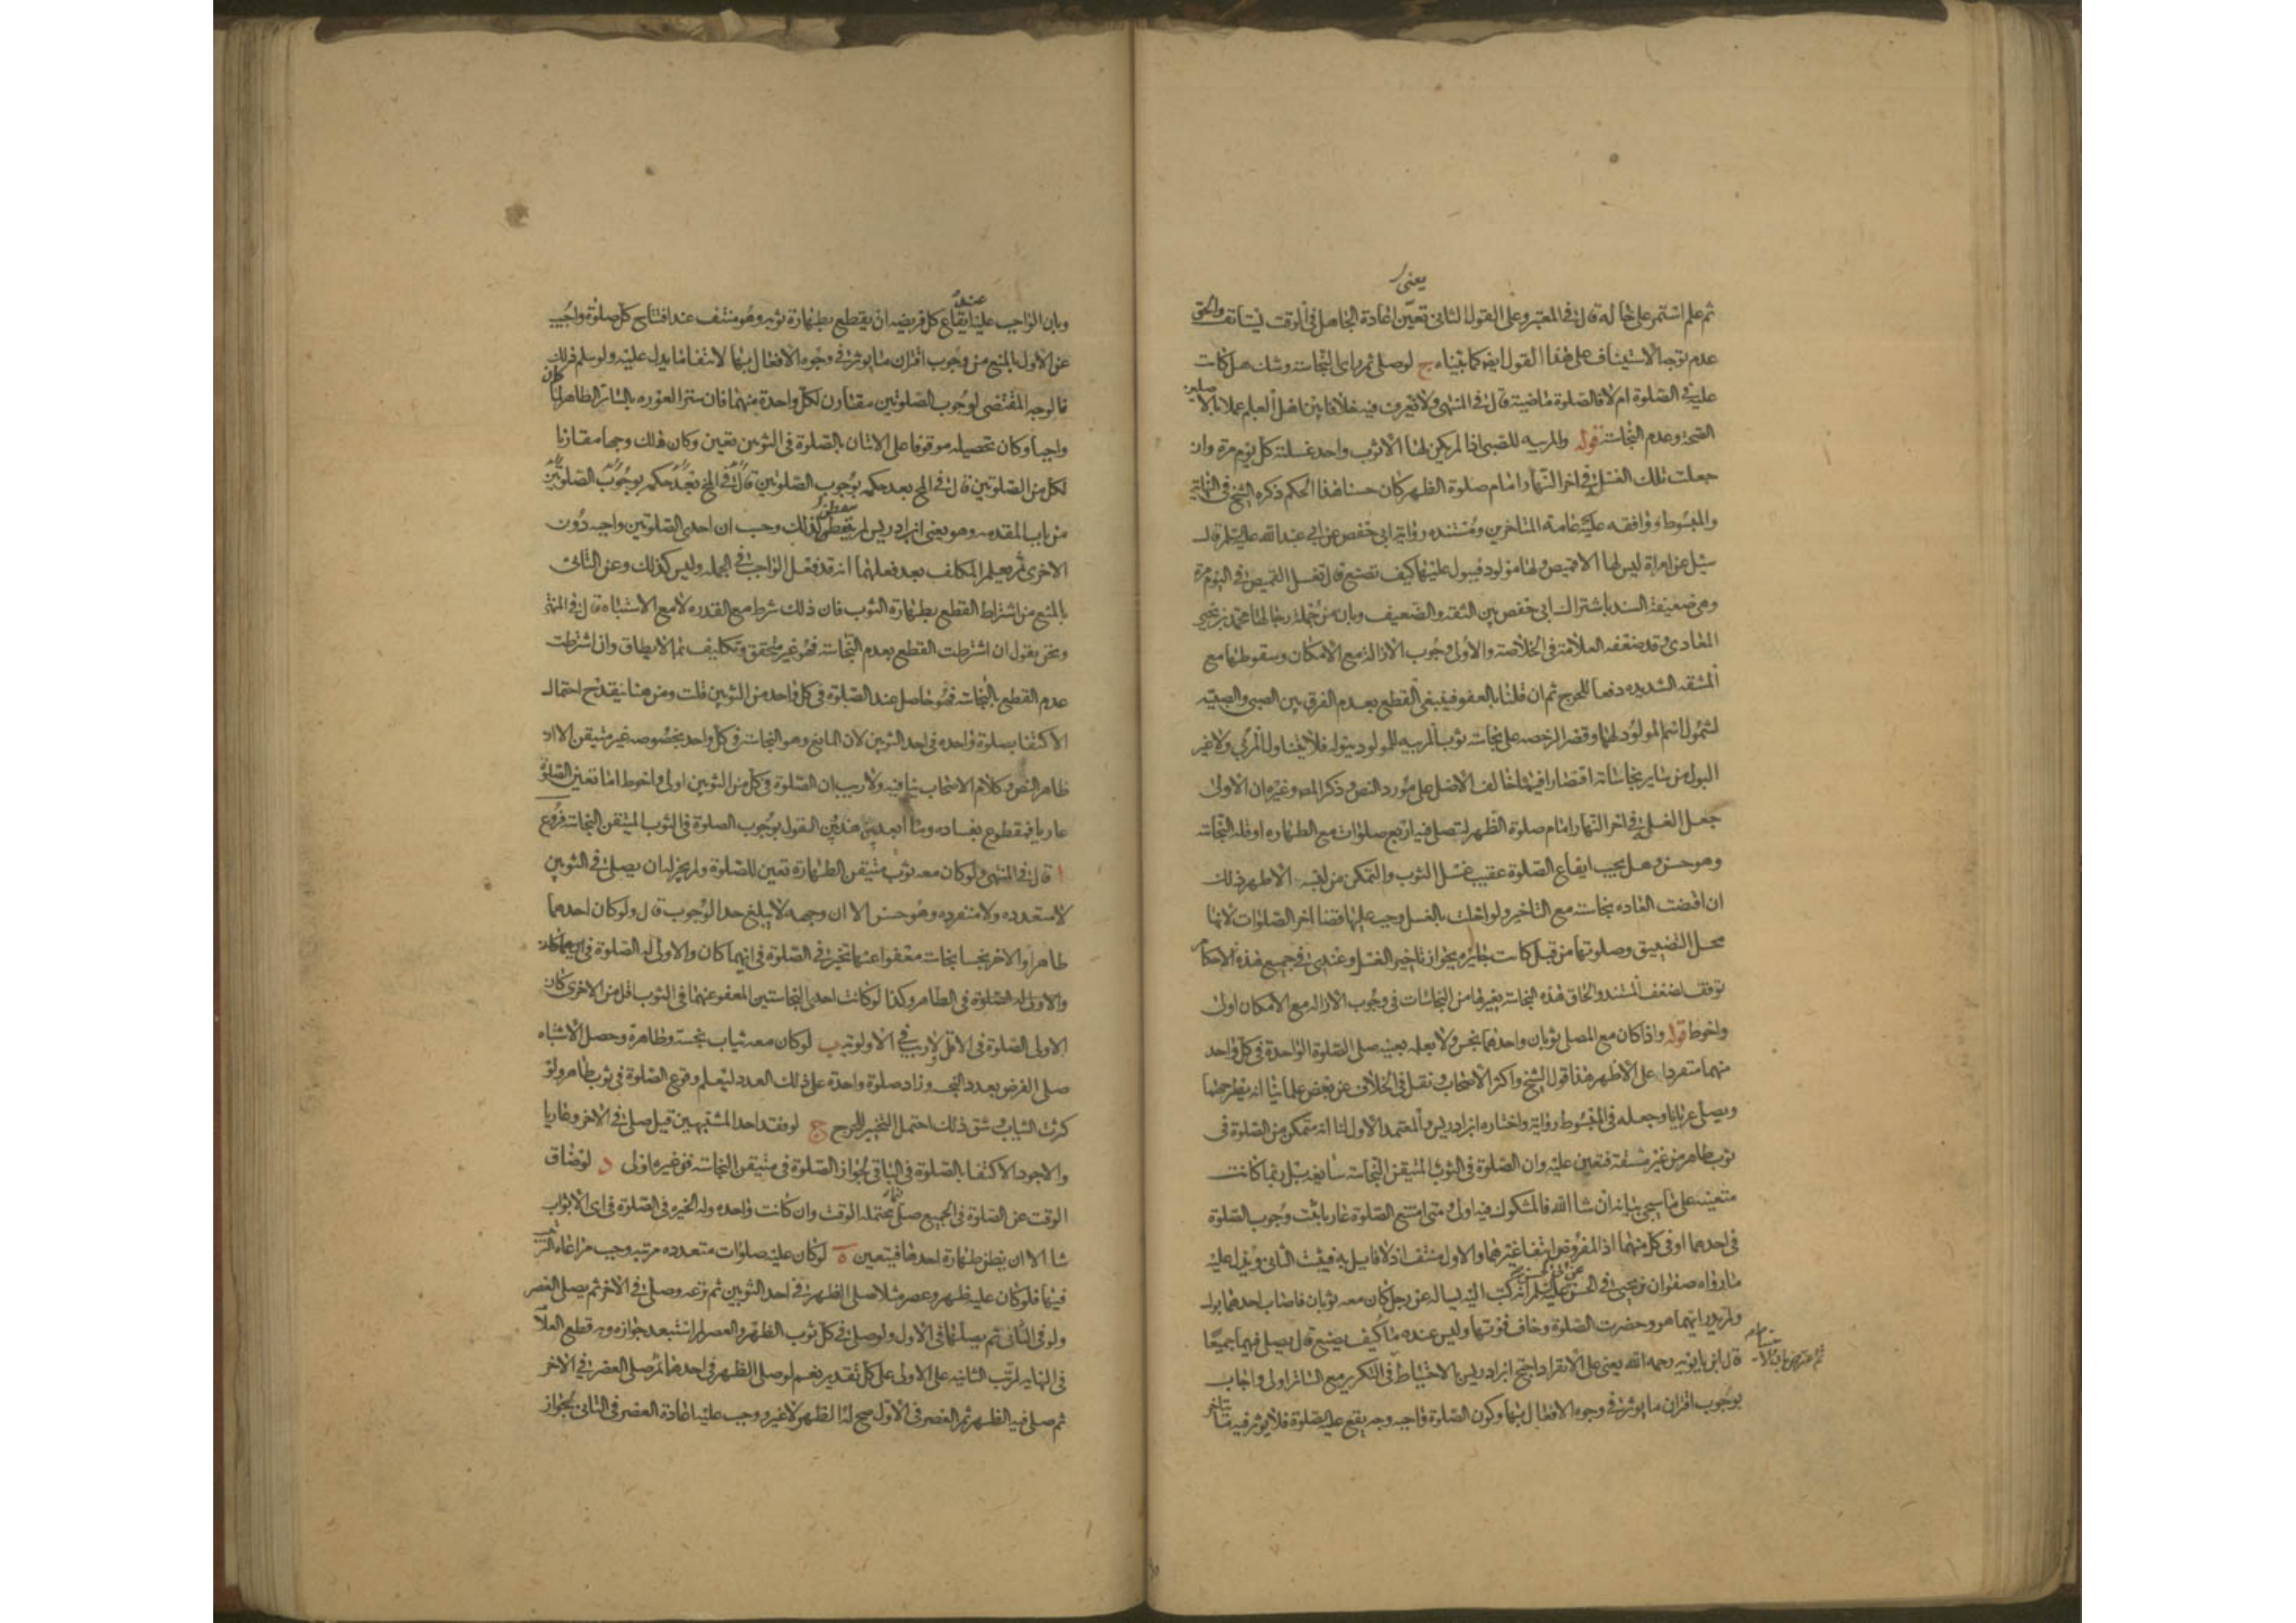 يعنى
ثم علم استمر على حاله قال فى المعتبر وعلى القول الثانى تعين اعادة الجاهل فى الوقت يستانف والحق
عدم توجه الاستيناف على هذا القول ايضا كما بيناه ج لو صلى ثم راى النجاسة وشك هل كانت
عليه فى الصلوة ام لا فالصلوة ماضية قال فى المنتهى ولا نعرف فيه خلافا بين اهل العلم عملا بالاصلين
الصحة وعدم النجاسة قوله والمربيه للصبى اذا لم يكن لها الا ثوب واحد غسلته كل يوم مرة وان
جعلت تلك الغسلة فى اخر النهار امام صلوة الظهر كان حسنا هذا الحكم ذكره الشيخ فى النهاية
والمبسوط ووافقه عليه عامة المتاخرين ومستنده رواية ابى حفص عن ابى عبد الله عليه السلم قال
سئل عن امراة ليس لها الا قميص ولها مولود فيبول عليها كيف تصنع قال تغسل القميص فى اليوم مرة
وهى ضعيفة السند باشتراك ابى حفص بين الثقه والضعيف وبان من جملة رجالها محمد بن يحيى
المعاذى وقد ضعفه العلامة فى الخلاصة والاولى وجوب الازالة مع الامكان وسقوطها مع
المشقه الشديده دفعا للحرج ثم ان قلنا بالعفو فينبغى القطع بعدم الفرق بين الصبى والصبيه
لشمول اسم المولود لهما وقصر الرخصه على نجاسة ثوب المربيه للمولود ببوله فلا يتناول المربى ولا غير
البول من ساير نجاساته اقتصارا فيما خالف الاصل على مورد النص وذكر المصـ وغيره ان الاولى
جعل الغسل فى اخر النهار امام صلوة الظهر لتصلى فيه اربع صلوات مع الطهاره او قلة النجاسة
وهو حسن وهل يجب ايقاع الصلوة عقيب غسل الثوب والتمكن من لبسه الاظهر ذلك
ان اقتضت العاده نجاسته مع التاخير ولو اخلت بالغسل وجب عليها قضا اخر الصلوات لانها
محل التضييق وصلوتها من قبل كانت جايزه بجواز تاخير الغسل وعندى فى جميع هذه الاحكام
توقف لضعف المستند والحاق هذه النجاسة بغيرها من النجاسات فى وجوب الازاله مع الامكان اولى
واحوط قوله واذا كان مع المصلى ثوبان واحدهما نجس ولا يعلمه بعينه صلى الصلوة الواحدة فى كل واحد
منهما منفردا على الاظهر هذا قول الشيخ واكثر الاصحاب ونقل فى الخلاف عن بعض علمائنا انه يطرحهما
ويصلى عريانا وجعله فى المبسوط رواية واختاره ابن ادريس والمعتمد الاول لنا انه متمكن من الصلوة فى
ثوب طاهر من غير مشقة فتعين عليه وان الصلوة فى الثوب المتيقن النجاسة سايغه بل ربما كانت
متعينه على ما سيجى بيانه ان شا الله فالمشكوك فيه اولى ومتى امتنع الصلوة عاريا ثبت وجوب الصلوة
فى احدهما او فى كل منهما اذ المفروض انتفا غيرهما والاول منتف اذ لا قايل به فيثبت الثانى ويدل عليه
ما رواه صفوان بن يحيى فى الحسن عن ابى الحسن عليه السلم انه كتب اليه يساله عن رجل كان معه ثوبان فاصاب احدهما بول
ولم يدر ايهما هو وحضرت الصلوة وخاف فوتها وليس عنده ما كيف يصنع قال يصلى فيهما جميعا
قال ابن بابويه رحمه الله يعنى على الانفراد احتج ابن ادريس بالاحتياط فى التكرير مع الساتر اولى واجاب
بوجوب اقتران ما يوثر فى وجوه الافعال بها وكون الصلوة واجبه وجه يقع عليه الصلوة فلا يوثر فيه ما يتاخر
وبان الواجب عليه عند ايقاع كل فريضه ان يقطع بطهارة ثوبه وهو منتف عند افتتاح كل صلوة واجيب
عن الاول بالمنع من وجوب اقتران ما يوثر فى وجوه الافعال بها لانتفا ما يدل عليه ولو سلم ذلك
فالوجه المقتضى لوجوب الصلوتين مقارن لكل واحدة منهما فان ستر العوره بالساتر الطاهر لما كان
واجبا وكان تحصيله موقوفا على الاتيان بالصلوة فى الثوبين تعين وكان ذلك وجها مقارنا
لكل من الصلوتين قال فى المخ بعد حكمه بوجوب الصلوتين قال فى المخ بعد حكمه بوجوب الصلوتين
من باب المقدمه وهو يعنى ابن ادريس لم يتفطن لذلك وحسب ان احدى الصلوتين واجبه دون
الاخرى ثم يعلم المكلف بعد فعلهما انه قد فعل الواجب فى الجمله وليس كذلك وعن الثانى
بالمنع من اشتراط القطع بطهارة الثوب فان ذلك شرط مع القدره لا مع الاشتباه قال فى المنتهى
ونحن نقول ان اشترطت القطع بعدم النجاسة فهو غير متحقق وتكليف بما لا يطاق وان اشترطت
عدم القطع بالنجاسة فهو حاصل عند الصلوة فى كل واحد من الثوبين قلت ومن هنا ينقدح احتمال
الاكتفا بصلوة واحده فى احد الثوبين لان المانع وهو النجاسة فى كل واحد بخصوصه غير متيقن الا ان
ظاهر النص وكلام الاصحاب ينافيه ولا ريب ان الصلوة فى كل من الثوبين اولى واحوط اما تعين الصلوة
عاريا فمقطوع بفساده وما ابعد بين هذين القول بوجوب الصلوة فى الثوب المتيقن النجاسة فروع
ا قال فى المنتهى ولو كان معه ثوب متيقن الطهارة تعين للصلوة ولم يجز له ان يصلى فى الثوبين
لا متعدده ولا منفرده وهو حسن الا ان وجهه لا يبلغ حد الوجوب قال ولو كان احدهما
طاهرا والاخر نجسا نجاسة معفوا عنها تخير فى الصلوة فى ايهما كان والاولى له الصلوة فى ايهما كان
والاولى له الصلوة فى الطاهر وكذا لو كانت احدى النجاستين المعفو عنهما فى الثوب اقل من الاخرى كان
الاولى الصلوة فى الاقل لا ريب فى الاولوية ب لو كان معه ثياب نجسة وطاهرة وحصل الاشتباه
صلى الفرض بعدد النجس وزاد صلوة واحدة على ذلك العدد ليعلم وقوع الصلوة فى ثوب طاهر ولو
كثرت الثياب وشق ذلك احتمل التخيير للحرج ج لو فقد احد المشتبهين قيل صلى فى الاخر وعاريا
والاجود الاكتفا بالصلوة فى الباقى لجواز الصلوة فى متيقن النجاسة ففى غيره اولى د لو ضاق
الوقت عن الصلوة فى الجميع صلى فيما يحتمله الوقت وان كانت واحده وله الخيره فى الصلوة فى اى الاثواب
شا الا ان يظن طهارة احدها فيتعين ه لو كان عليه صلوات متعدده مرتبه وجب مراعاه الترتيب
فيها فلو كان عليه ظهر وعصر مثلا صلى الظهر فى احد الثوبين ثم نزعه وصلى فى الاخر ثم يصلى العصر
ولو فى الثانى ثم يصليها فى الاول ولو صلى فى كل ثوب الظهر والعصر لم استبعد جوازه وبه قطع العلا
فى النهايه لترتب الثانيه على الاولى على كل تقدير نعم لو صلى الظهر فى احدهما ثم صلى العصر فى الاخر
ثم صلى فيه الظهر ثم العصر فى الاول صح له الظهر لا غير ووجب عليه اعادة العصر فى الثانى لجواز